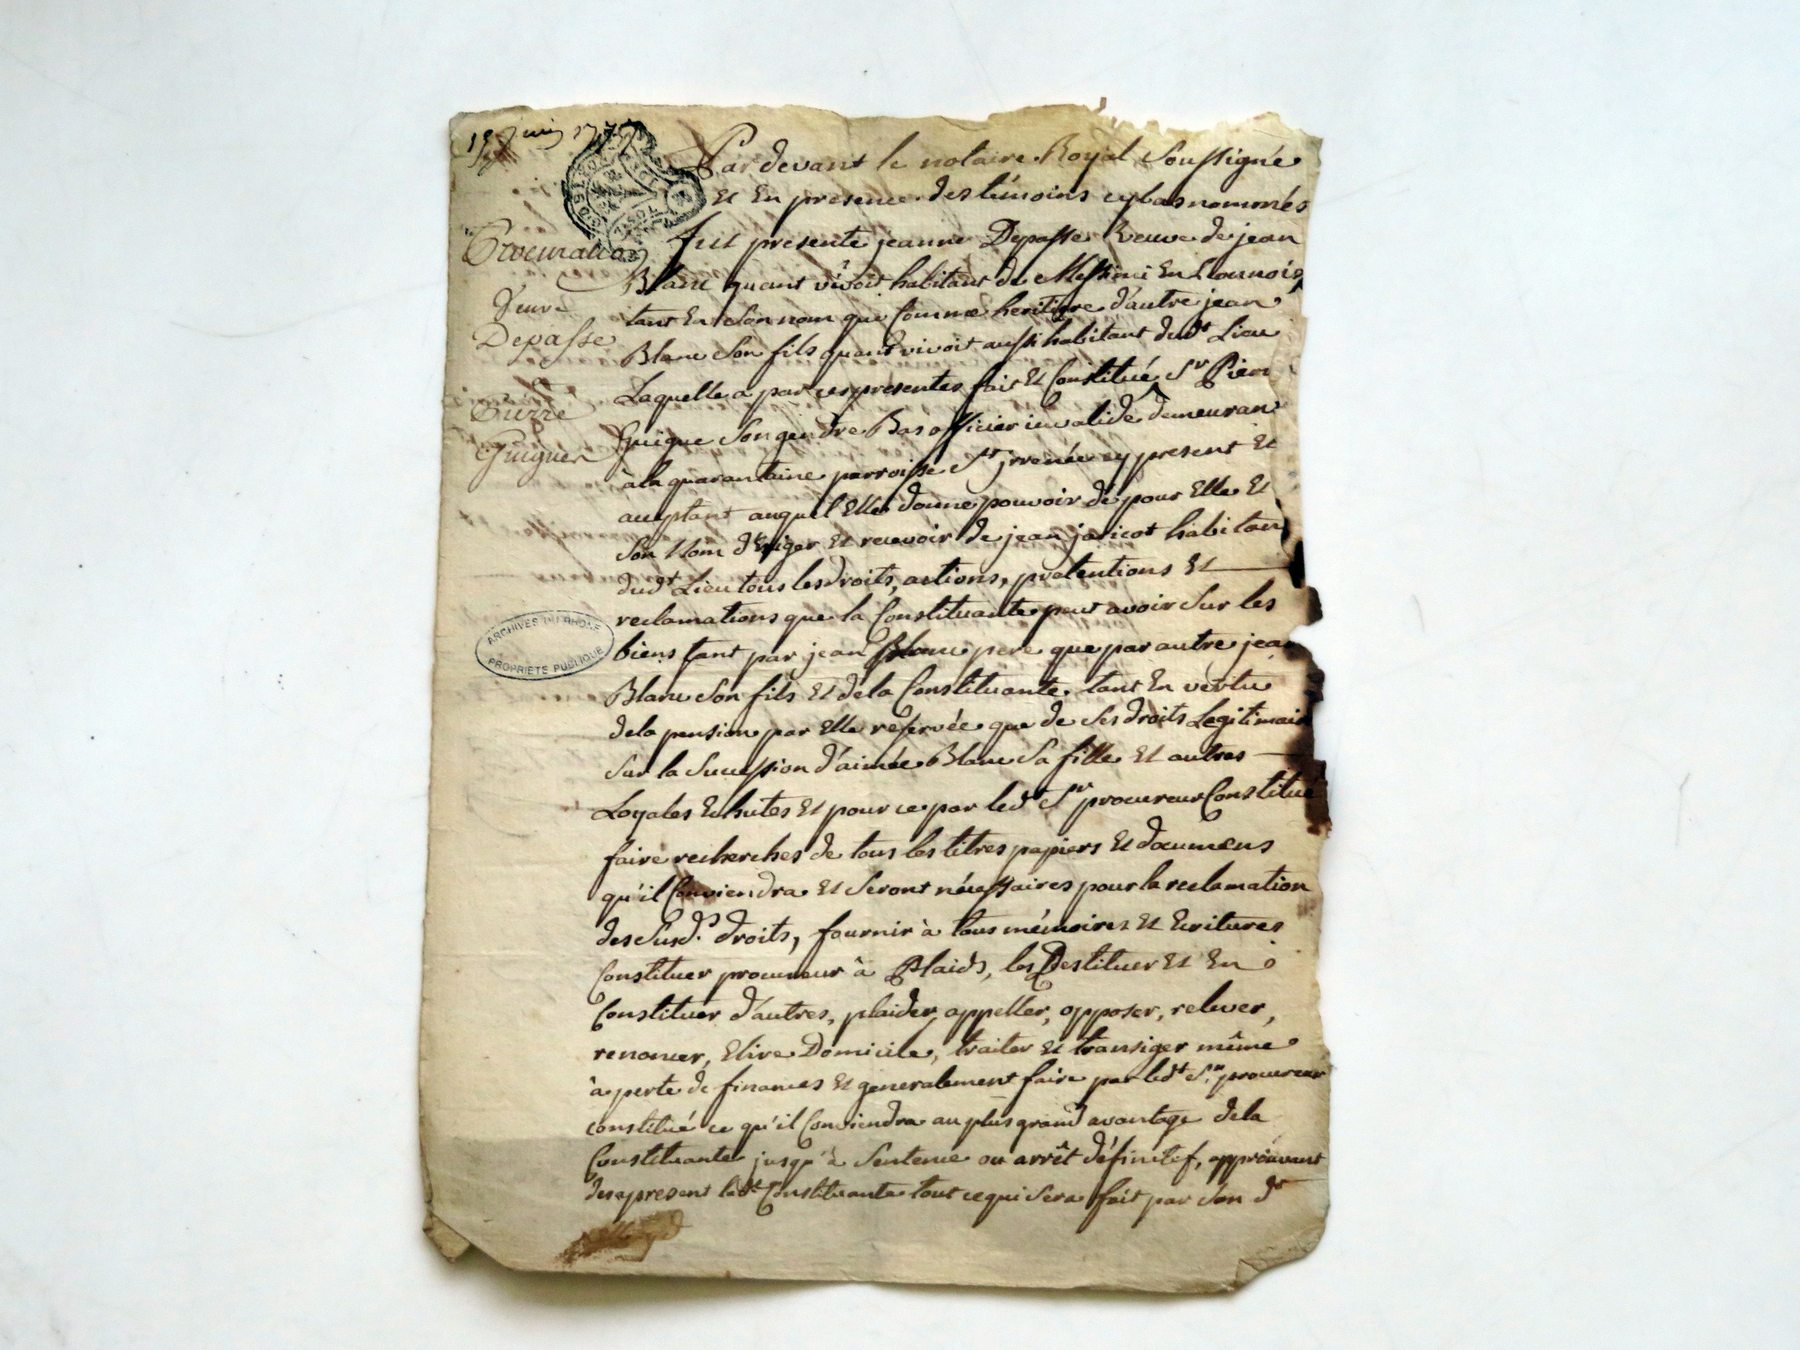 Par devant le notaire Royal Soussigné
Et En presence des témoins cy bas nommés
fut presente jeanne Depasse Veuve de jean
Blanc quant vivoit habitant de Messimi En Lionnois,
tant En Son nom que Comme heritiere d'autre jean
Blanc Son fils quand vivoit aussi habitant dudt Lieu
Laquelle a par ces presentes fait Et Constitué Sr Pierre
Guigue Son gendre Bas officier invalide demeurant
à la quarantaine parroisse St jrenée cy present Et
acceptant auquel Elle donne pouvoir de pour Elle Et
Son Nom d'Exiger Et recevoir de jean jaricot habitant
dudt Lieu tous les droits, actions, pretentions Et
reclamations que la Constituante peut avoir Sur les
biens tant par jean Blanc pere que par autre jean
Blanc Son fils Et de la Constituante tant En vertu
de la pension par Elle reservée que de Ses droits Legitimaires
Sur la Succession d'aimée Blanc Sa fille Et autres
Loyales Echutes Et pour ce par ledt Sr procureur Constitué
faire recherches de tous les titres papiers Et documens
qu'il Conviendra Et Seront nécessaires pour la reclamation
des Susds. droits, fournir à tous mémoires Et Ecritures
Constituer procureur à Plaids, les Destituer Et En
Constituer d'autres, plaider, appeller, opposer, relever,
renoncer, Elire Domicile, traiter Et transiger même
à perte de finances Et generalement faire par ledt Sr. procureur
constitué ce qu'il Conviendra au plus grand avantage de la
Constituante jusqu'à Sentence ou arrêt définitef, approuvant
des a present ladt Constituante tout ce qui Sera fait par Son dt
Procuration
Veuve
Depasse
Pierre
Guigue
ARCHIVES DU RHONE
PROPRIETE PUBLIQUE